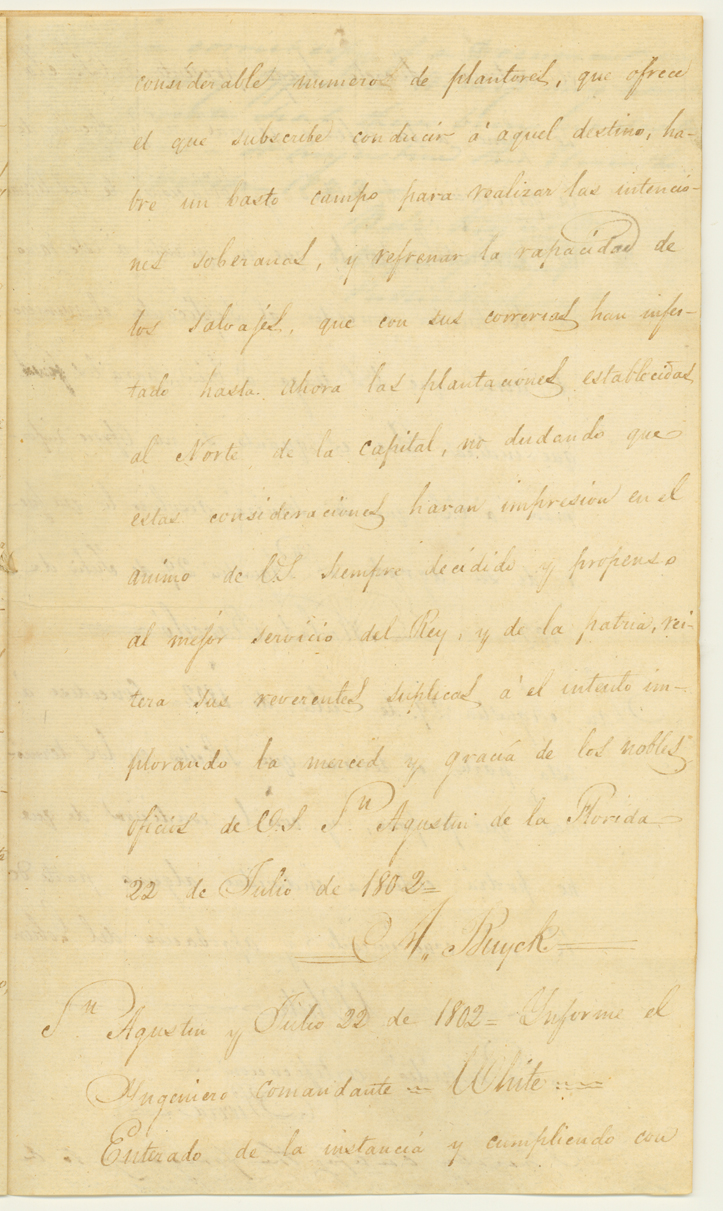 considerable numero de plantores, que ofrece
el que subscribe conducir á aquel destino, ha-
bre un basto campo para realizar las intencio-
nes soberanas, y refrenar la rapacidad de
los salvajes, que con sus correrias han infes-
tado hasta ahora las plantaciones establecidas
al Norte de la capital, no dudando que
estas consideraciones haran impresion en el
animo de V.S. siempre decidido y propenso
al mejor servicio del Rey, y de la patria, rei-
tera sus reverentes suplicas á el intento im-
plorando la merced y gracia de los nobles
oficios de V.S. Sn. Agustin de la Florida
22 de Julio de 1802=
A. Buyck
Sn. Agustin y Julio 22 de 1802= Informe el
Ingeniero comandante = White =
Enterado de la instancia y cumpliendo con